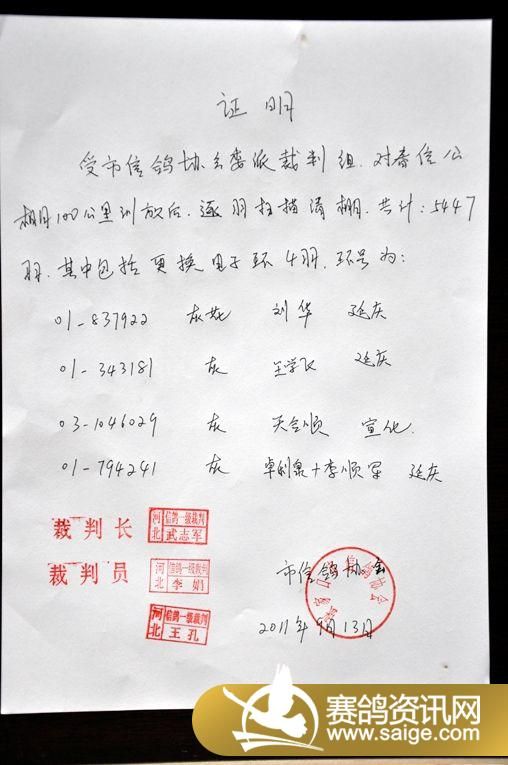 证明
受市信鸽协会委派裁判组.对春信公
棚100公里训放后.逐羽扫描清棚.共计:5447
羽.其中包括更换电子环4羽.环号为:
01-837922 灰花 刘华 延庆
01-343181 灰 王学民 延庆
03-1046029 灰 天合顺 宣化
01-794241 灰 卓利泉+李顺军 延庆
裁判长 河北 信鸽一级裁判 武志军
裁判员 河北 信鸽一级裁判 李娟
河北 信鸽一级裁判 王孔
市信鸽协会
2011年9月13日
赛鸽资讯网
www.saige.com